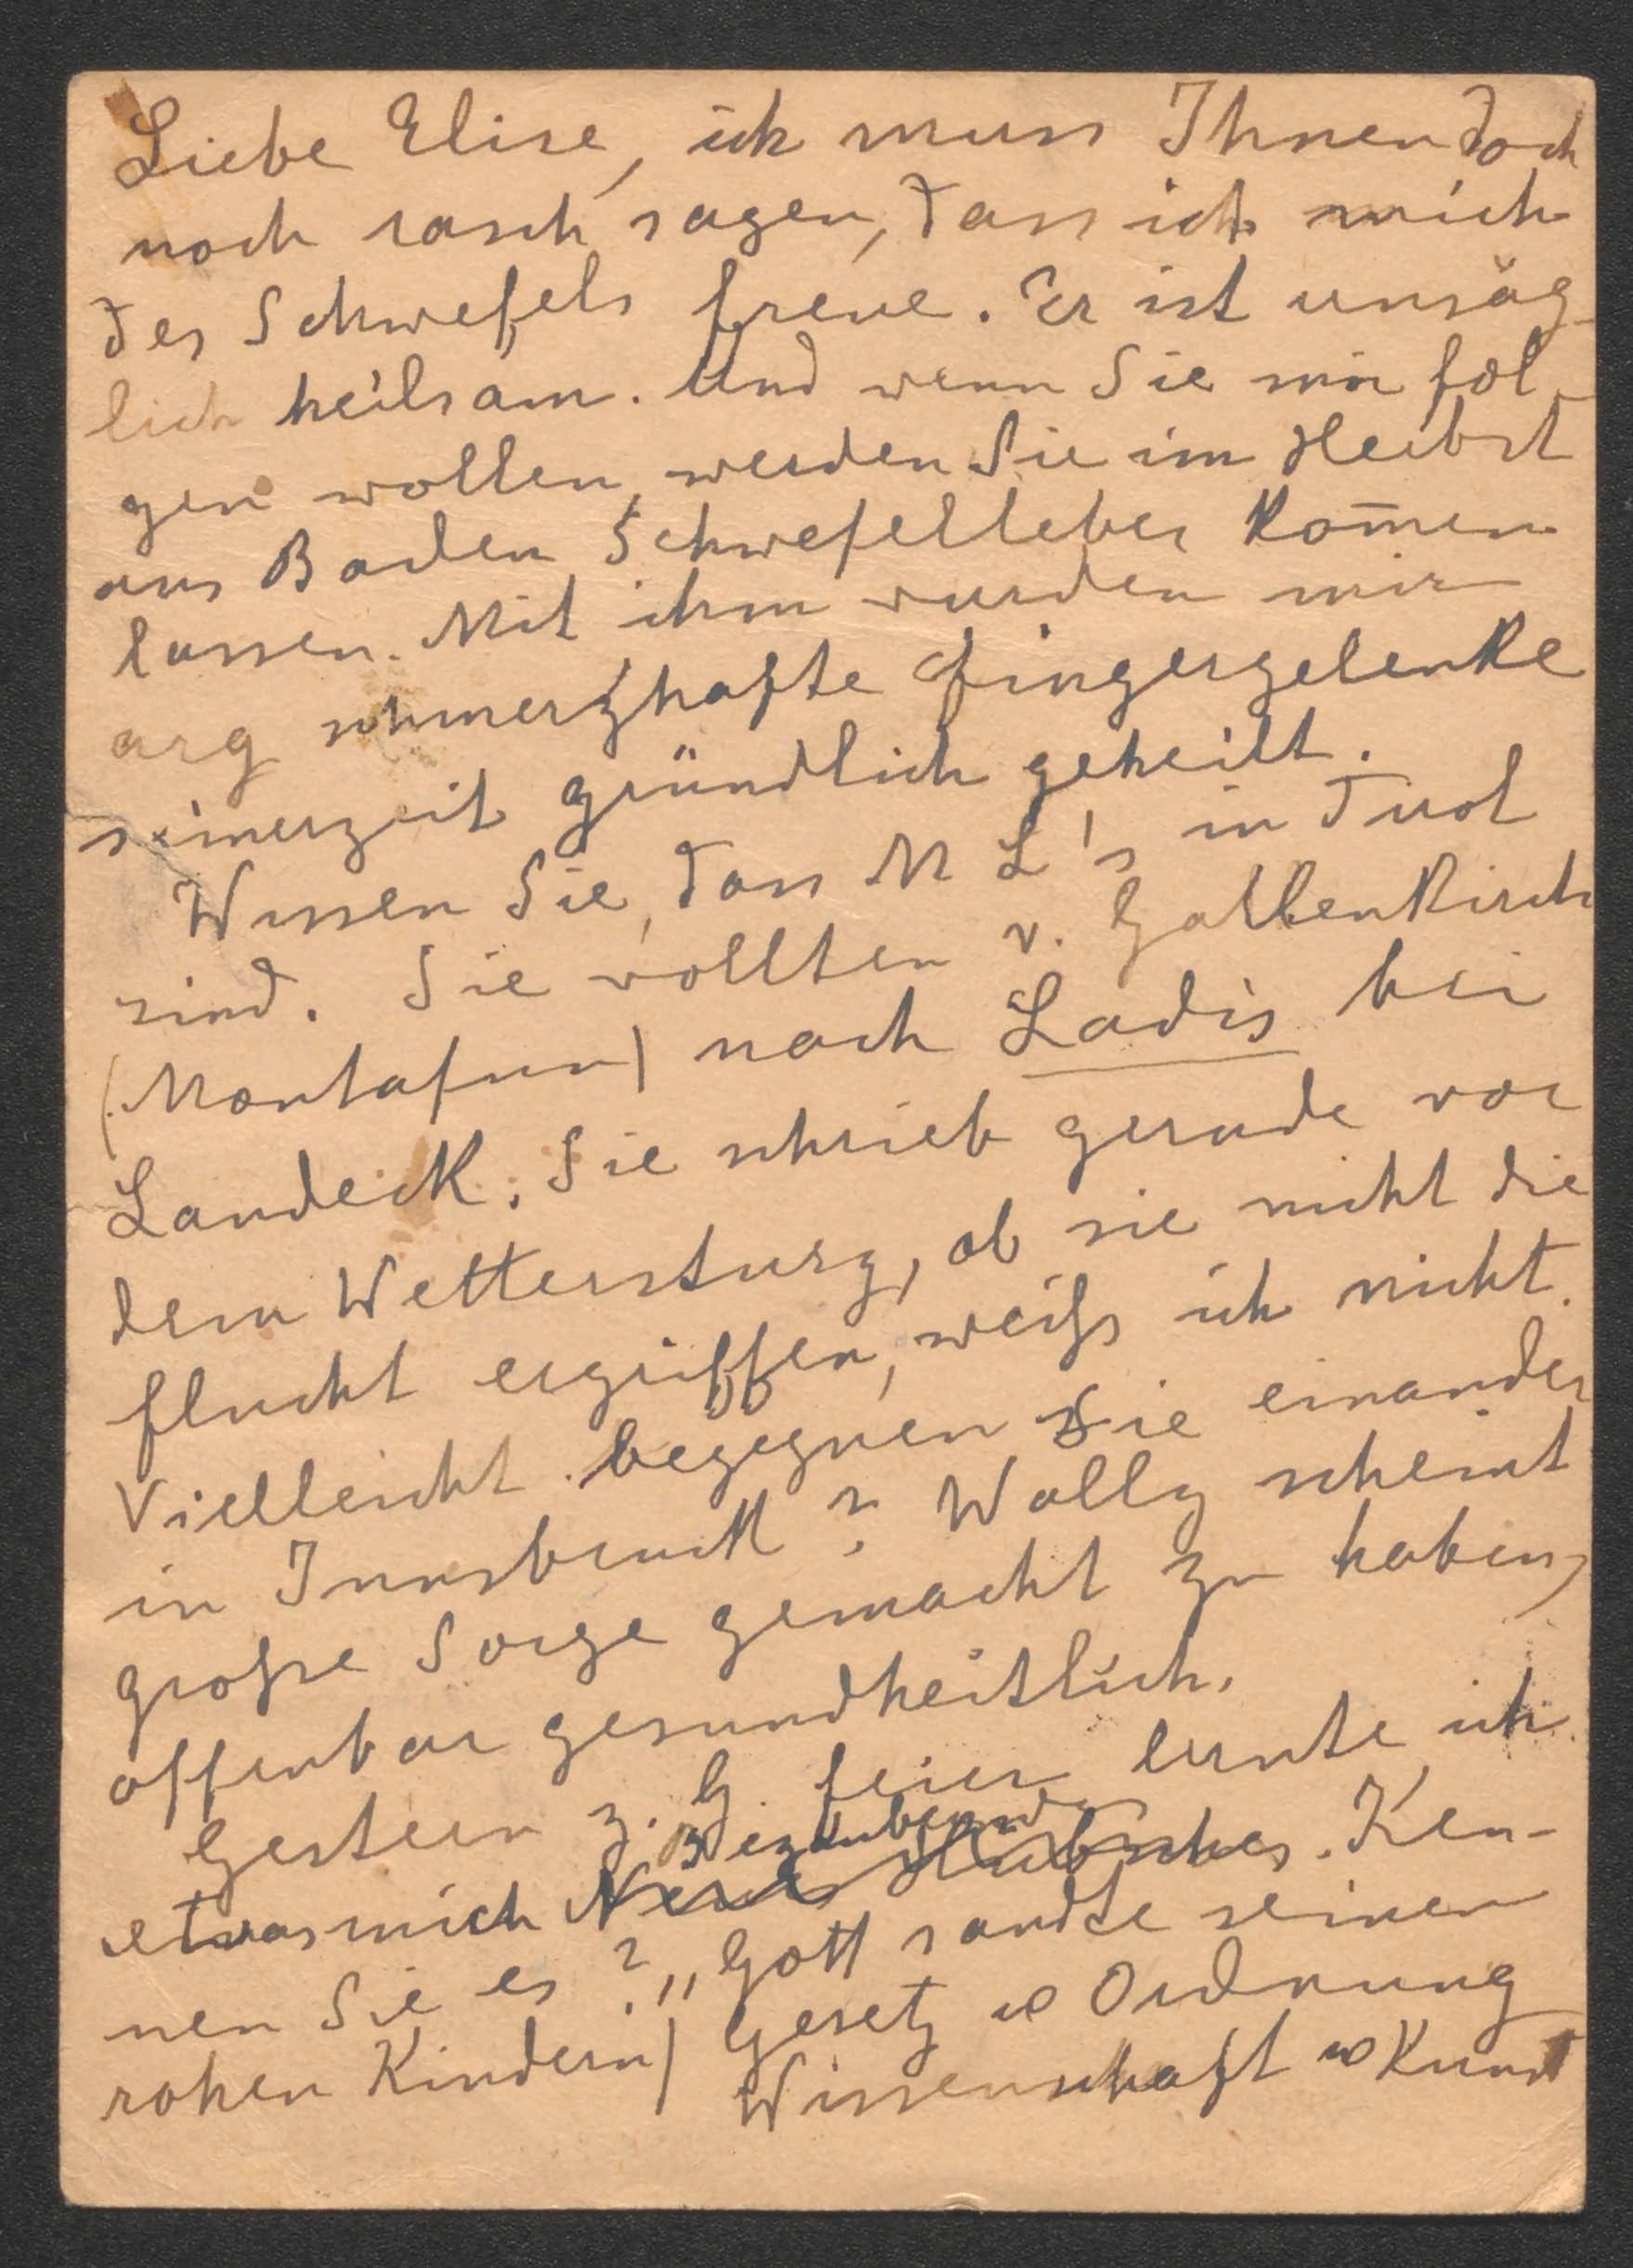 Liebe Elise, ich muss Ihnen doch
noch rasch sagen, dass ich mich
des Schwefels freue. Er ist unsäg-
lich heilsam. Und wenn Sie mir fol-
gen wollen, werden Sie im Herbst
aus Baden Schwefelleber kom̄en
lassen. Mit ihm wurden mir
arg schmerzhafte Fingergelenke
seinerzeit gründlich geheilt.
Wissen Sie, dass M L's in Tirol
sind. Sie wollten v. Gallenkirch
(Montafun) nach Ladis bei
Landeck. Sie schrieb gerade vor
dem Wettersturz, ob sie nicht die
Flucht ergriffen, weiss ich nicht.
Vielleicht begegnen Sie einander
in Innsbruck? Wally scheint
grosse Sorge gemacht zu haben,
offenbar gesundheitlich.
Gestern z. G. feier lernte ich
etwas mich Bezauberndes
Neues Hübsches. Ken-
nen Sie es? „Gott sandte seinen
rohen Kindern/ Gesetz u Ordnung
Wissenschaft u Kunst